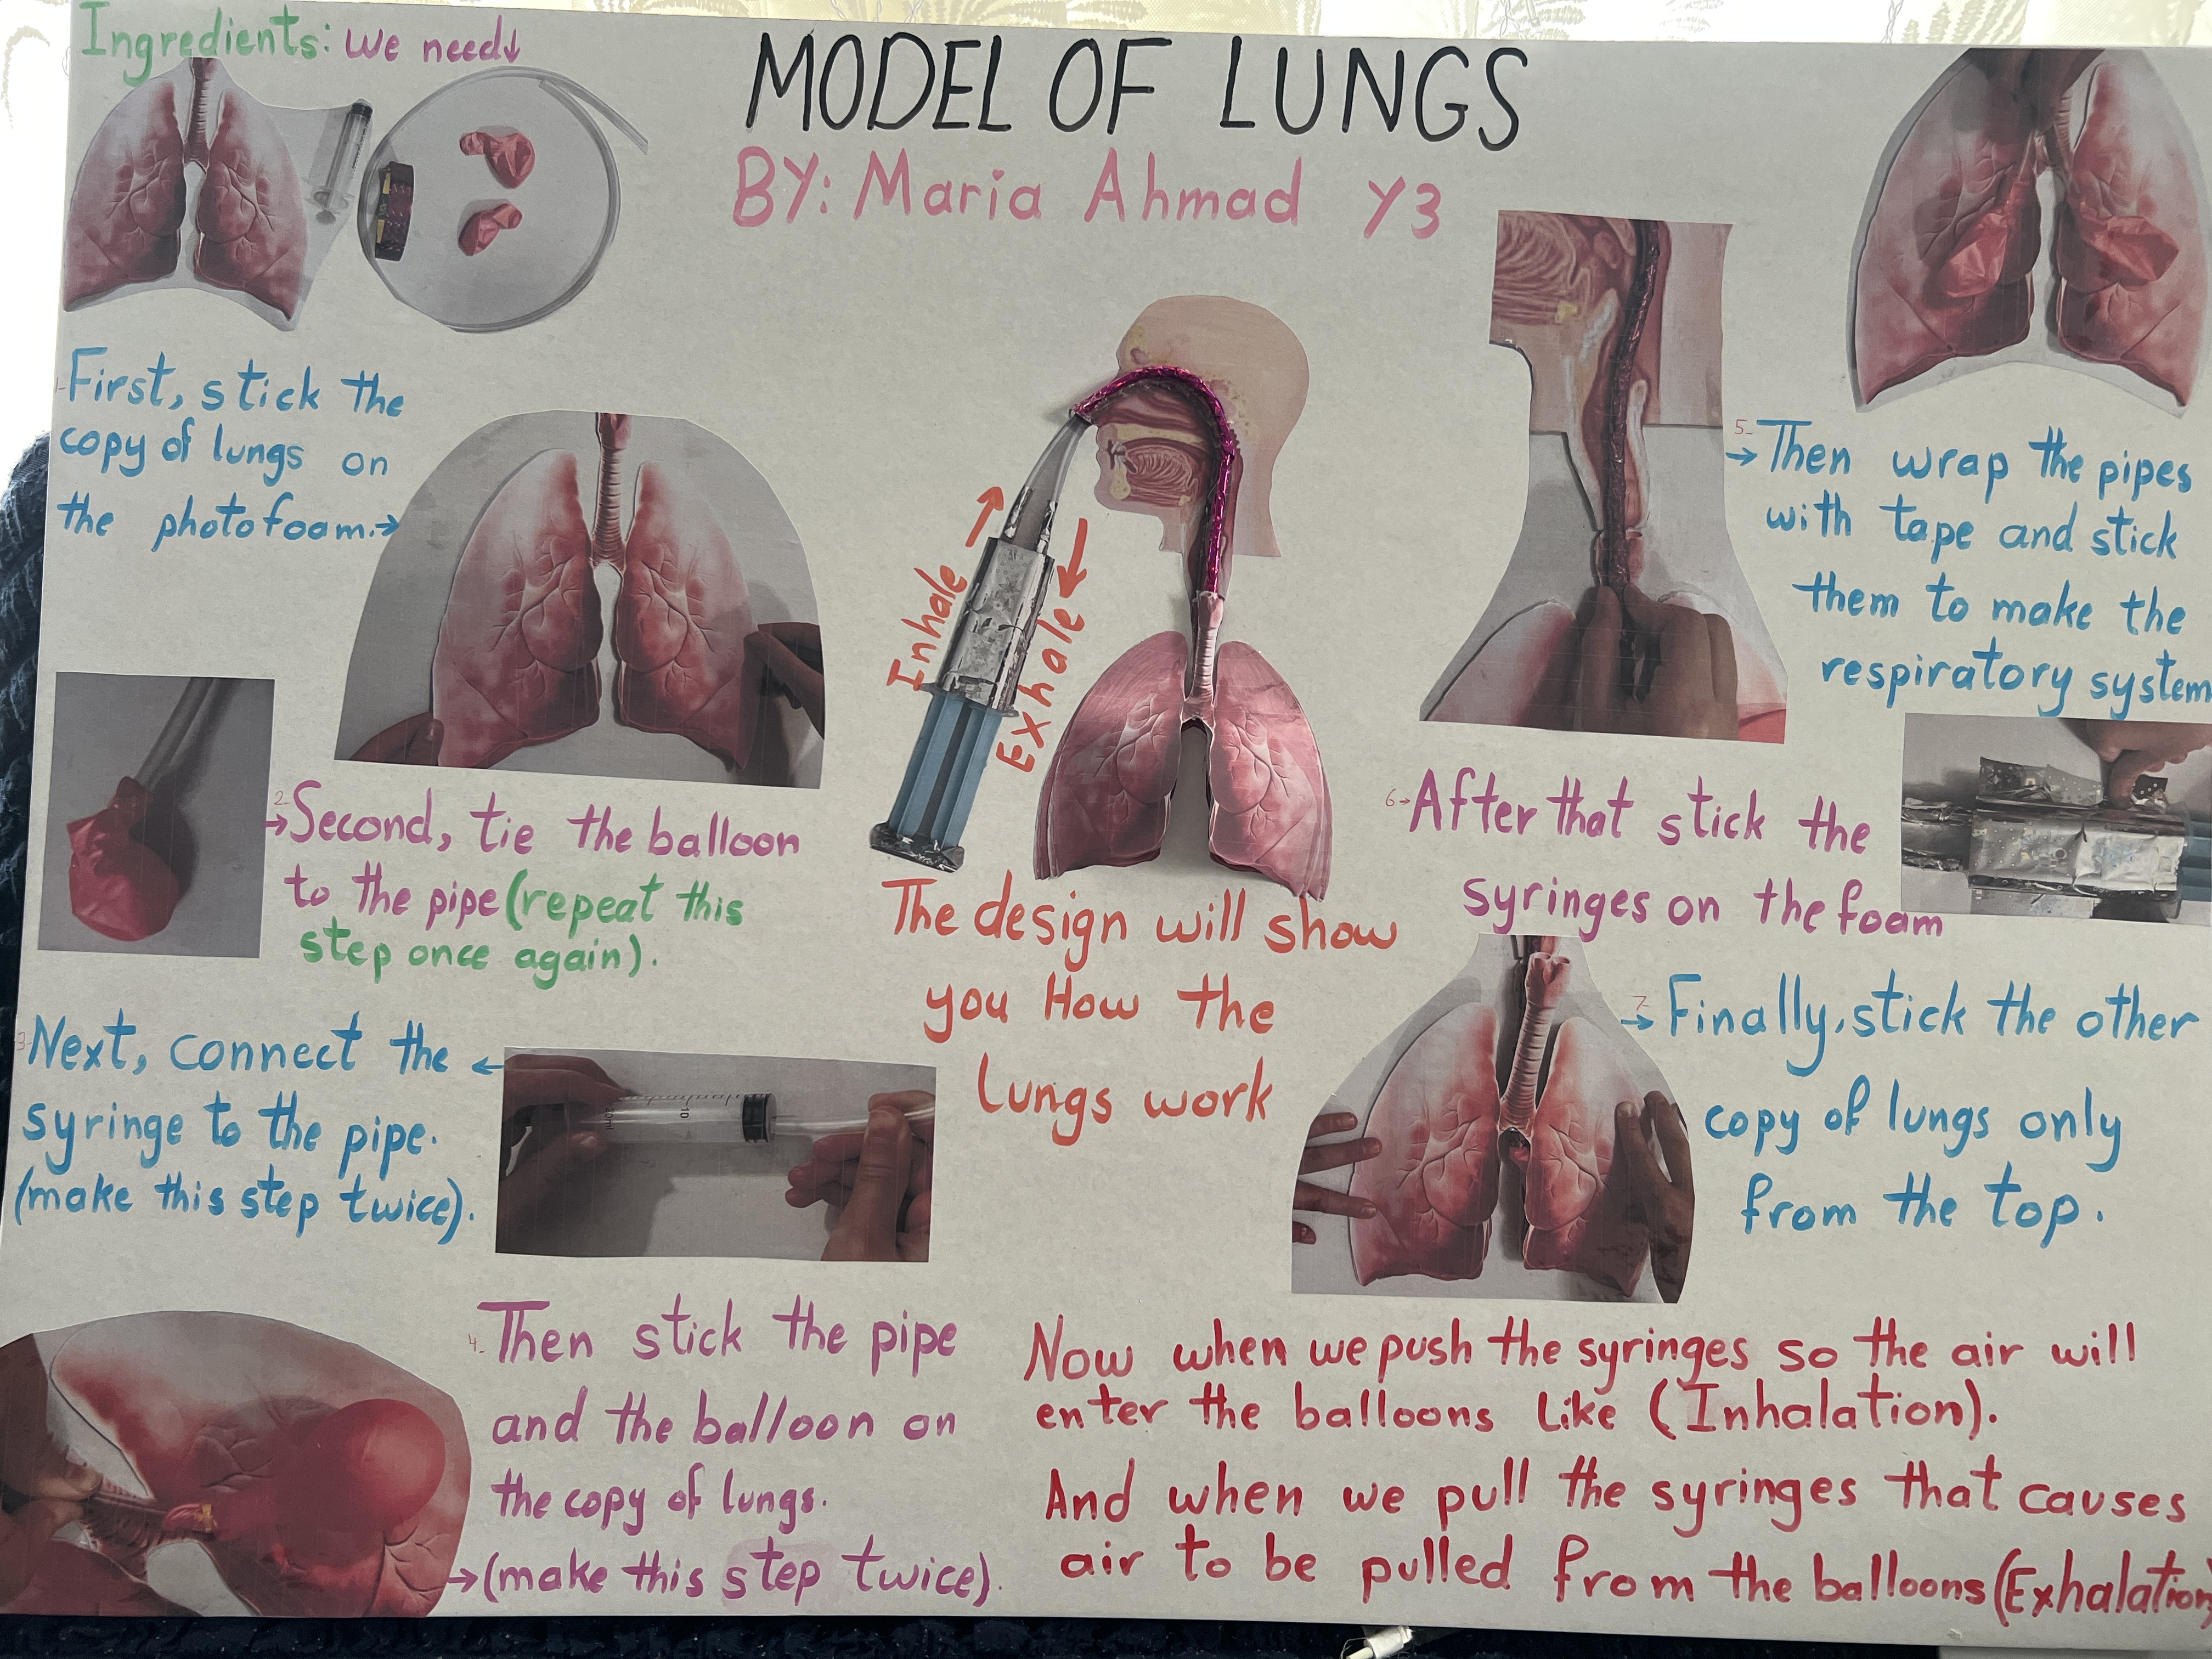 Ingredients: we need↓
MODEL OF LUNGS
BY: Maria Ahmad Y3
1- First, stick the
copy of lungs on
the photo foam.→
2- →Second, tie the balloon
to the pipe (repeat this
step once again).
3- Next, connect the ←
syringe to the pipe.
(make this step twice).
4- Then stick the pipe
and the balloon on
the copy of lungs.
→(make this step twice).
Inhale →
Exhale ←
The design will show
you How the
Lungs work
5- →Then wrap the pipes
with tape and stick
them to make the
respiratory system
6→ After that stick the
syringes on the foam
7- →Finally, stick the other
copy of lungs only
from the top.
Now when we push the syringes so the air will
enter the balloons Like (Inhalation).
And when we pull the syringes that causes
air to be pulled from the balloons (Exhalation)
10